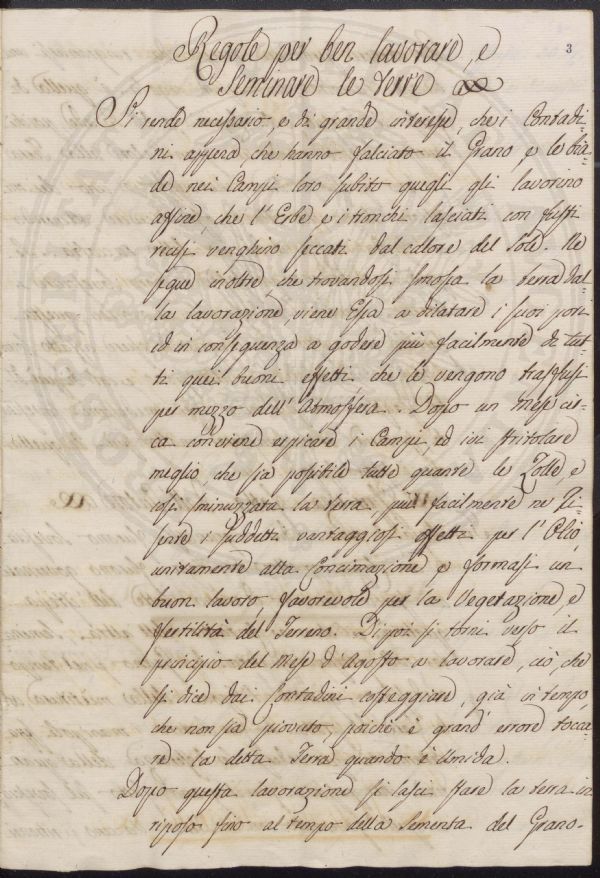 3
Regole per ben lavorare, e
Seminare le terre
Si rende necessario, e di grande interesse, che i Contadi=
ni appena, che hanno falciato il Grano, e le bia=
de nei Campi loro subito quegli gli lavorino
affine, che l'Erbe e i tronchi lasciati con frusti
recisi venghino seccati dal calore del Sole. Ne
segue inoltre, che trovandosi smossa la terra dal=
la lavorazione, viene Essa a dilatare i suoi pori
ed in conseguenza a godere più facilmente di tut=
ti quei buoni effetti che le vengono trasfusi
per mezzo dell'Atmosfera. Dopo un Mese cir=
ca conviene erpicare i Campi, ed ivi stritolare
meglio, che sia possibile tutte quante le Zolle, e
così sminuzzata la terra più facilmente ne
i suddetti vantaggiosi effetti per l'
unitamente alla Concimazione e formasi un
buon lavoro favorevole per la Vegetazione, e
fertilità del Terreno. Di poi si torni verso il
principio del Mese d'Agosto a lavorare, ciò, che
si dice dai Contadini costeggiare, già in tempo,
che non sia piovuto, poichè è grand'errore tocca=
re la detta Terra quando è Umida.
Dopo questa lavorazione si lasci stare la terra in
riposo fino al tempo della Sementa del Grano.